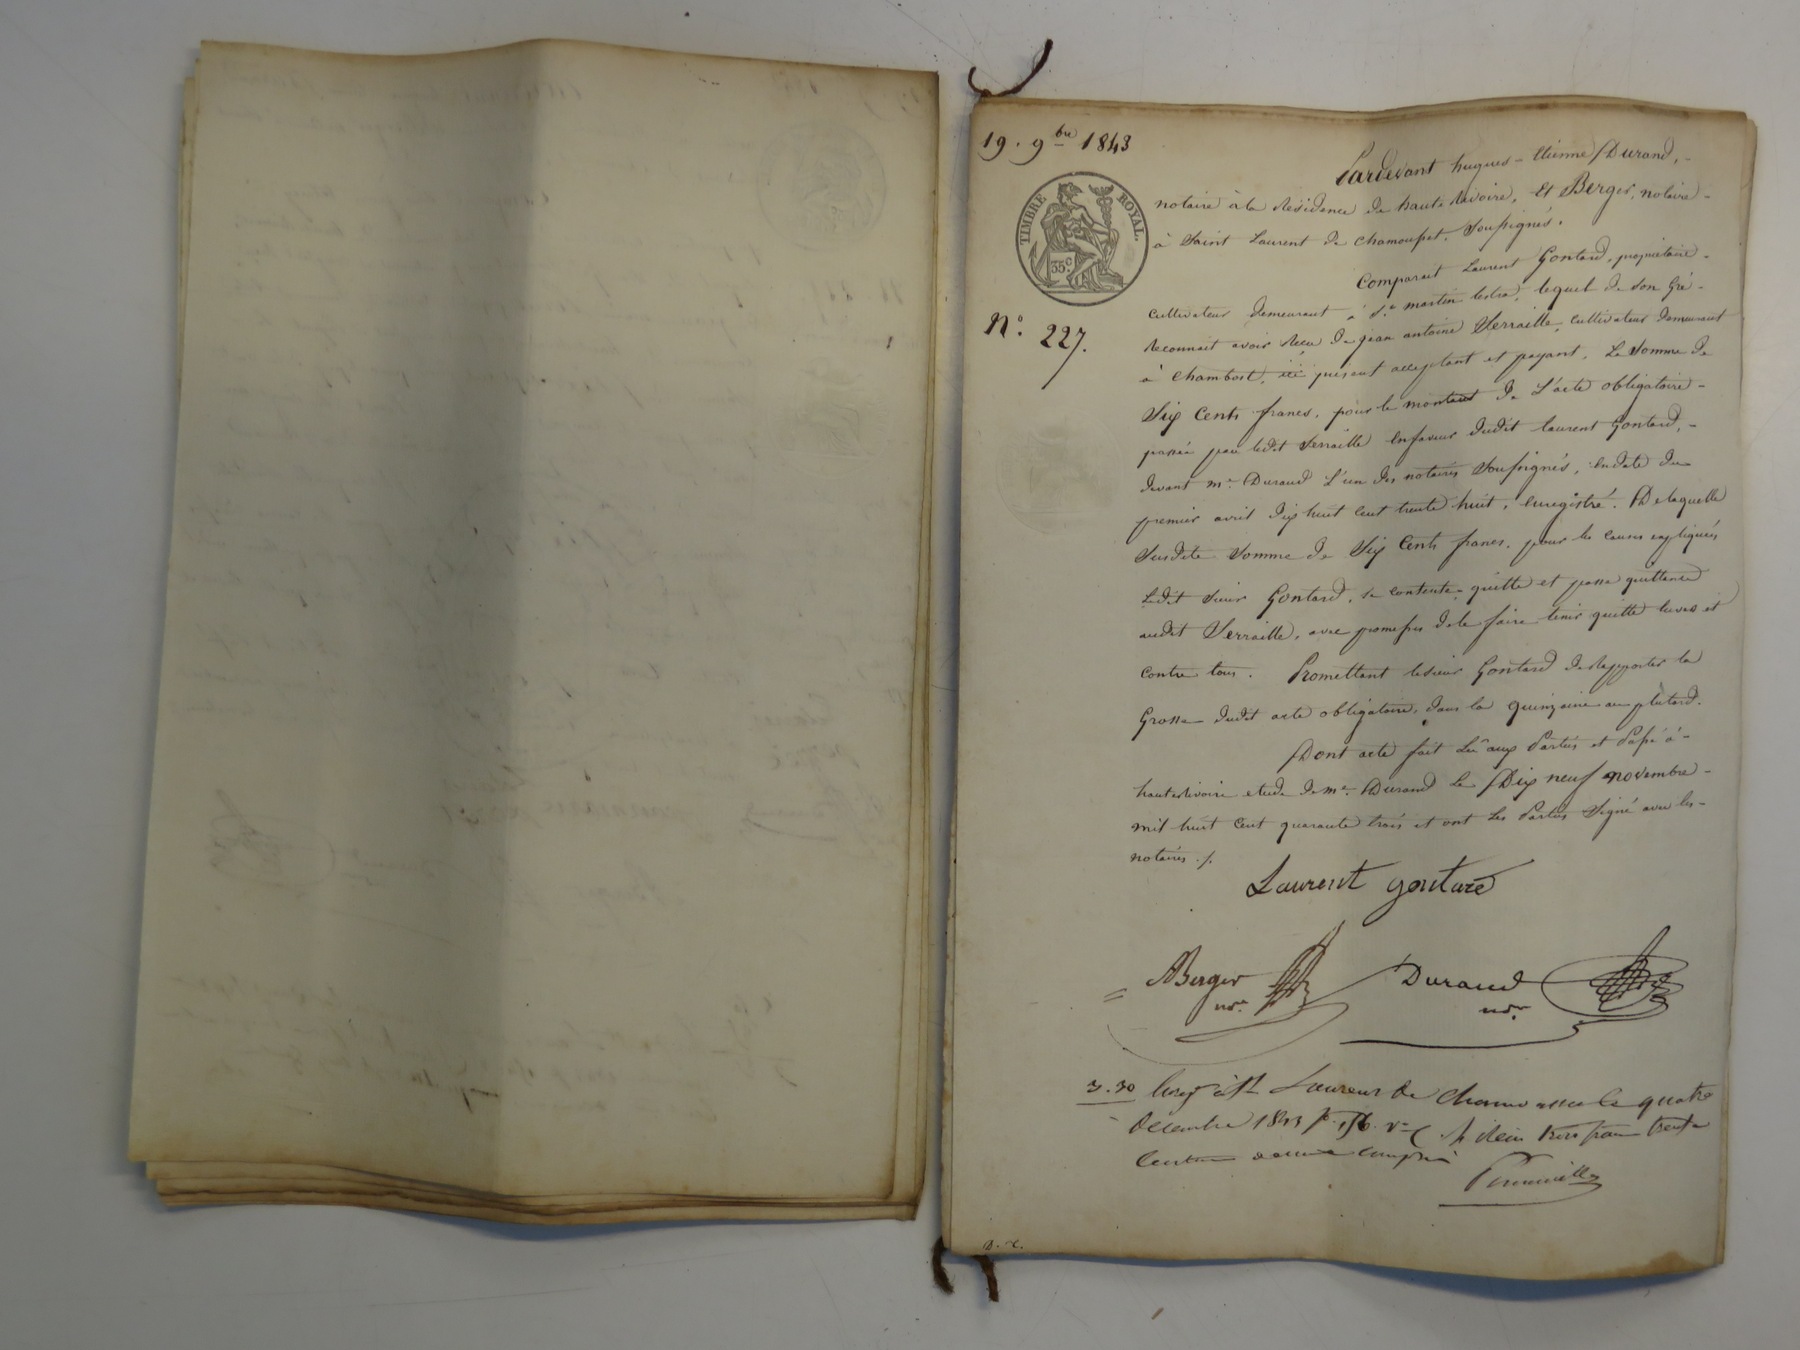 19. 9bre 1843
TIMBRE ROYAL.
35.c
N.o 227.
Pardevant hugues-Etienne Durand,-
notaire à la Résidence de haute Rivoire, Et Berger, notaire-
à Saint Laurent de Chamousset. Soussignés.
Comparait Laurent Gontard, propriétaire-
cultivateur demeurant à St. martin lestra, lequel de son Gré-
Reconnait avoir Recu de jean antoine Serraille, cultivateur demeurant
à chambost, ici présent acceptant et payant, la Somme de
Six Cents francs, pour le montant de L'acte obligatoire-
passée par ledit Serraille enfaveur dudit laurent Gontard,-
devant me. Durand L'un des notaires Soussignés, en date du
premier avril dix huit cent trente huit, enregistré. De laquelle
Susdite Somme de Six Cents francs, pour les causes expliquées
Ledit sieur Gontard, se contente, quitte et passe quittance
audit Serraille, avec promesse de le faire tenir quitte envers et
Contre tous. Promettant le sieur Gontard de Rapporter la
Grosse dudit acte obligatoire, dans la quinzaine au plutard.
Dont acte fait Lu aux Parties et Passé à-
hauterivoire etude de me. Durand Le Dix neuf novembre-
mil huit Cent quarante trois et ont Les Parties Signé avec les-
notaires ./.
Laurent gontard
Berger
nre.
Durand
nre.
3.30 Enreg à St Laurent de Chamousset le quatre
décembre 1843 fo. 156. vo C Reçu trois francs trente
Centimes décime compris
B. C.